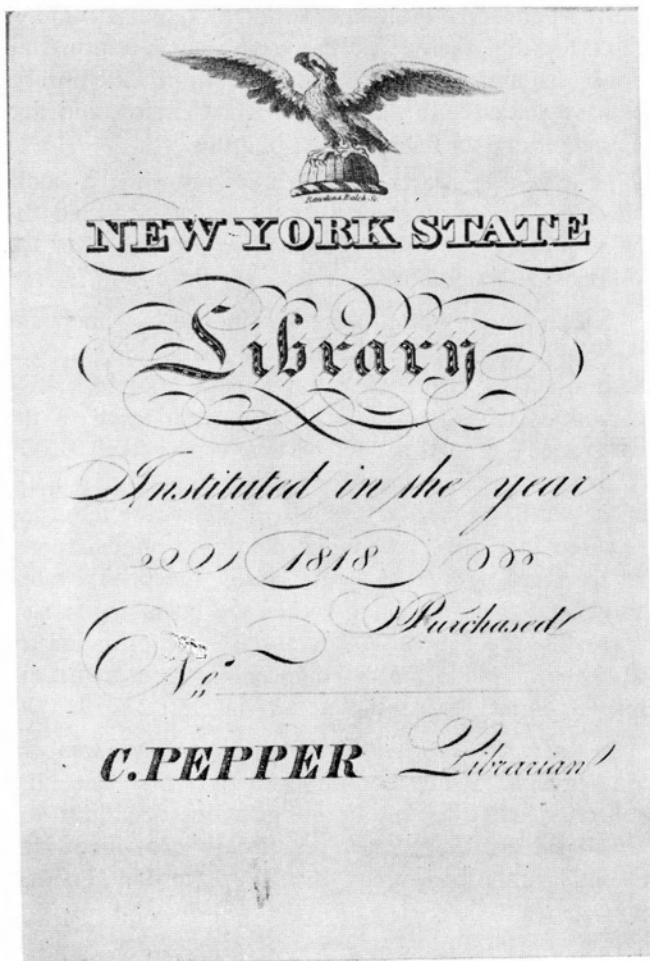 Rawdon & Balch Sc.
NEW YORK STATE
Library
Instituted in the year
1818
Purchased
No.
C. PEPPER Librarian